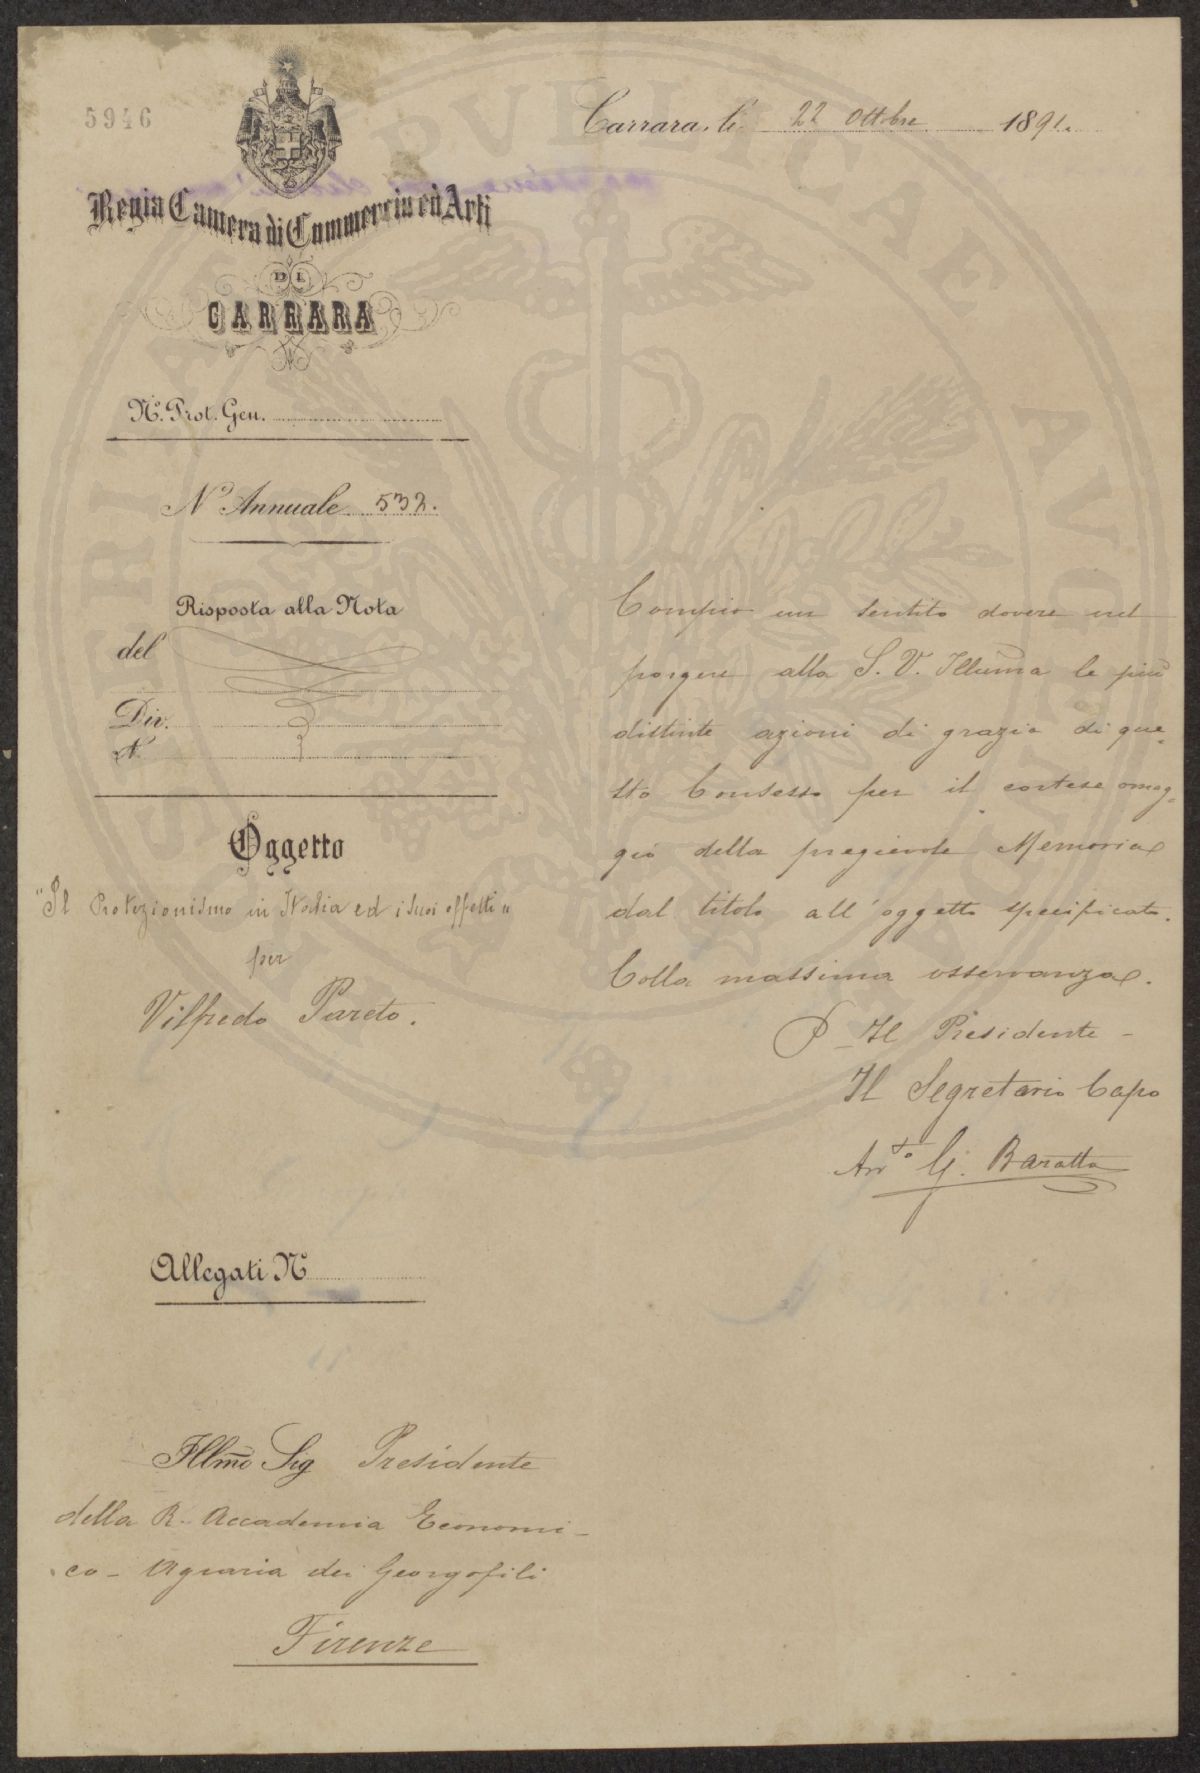 5946
Carrara, lì 22 Ottobre 1891.
Regia Camera di Commercio ed Arti
DI
CARRARA
N.º Prot. Gen.
Nº Annuale 532.
Risposta alla Nota
del
Div.
N.
Oggetto
"Il Protezionismo in Italia ed i suoi effetti"
per
Vilfredo Pareto.
Compio un sentito dovere nel
porgere alla S. V. Illuma le più
distinte azioni di grazie di que-
sto Consesso per il cortese omag-
gio della pregievole Memoria
dal titolo all'oggetto specificato.
Colla massima osservanza.
P. Il Presidente -
Il Segretario Capo
G. Baratta
Allegati Nº
Illmo Sig Presidente
della R. Accademia Economi-
co - Agraria dei Georgofili
Firenze